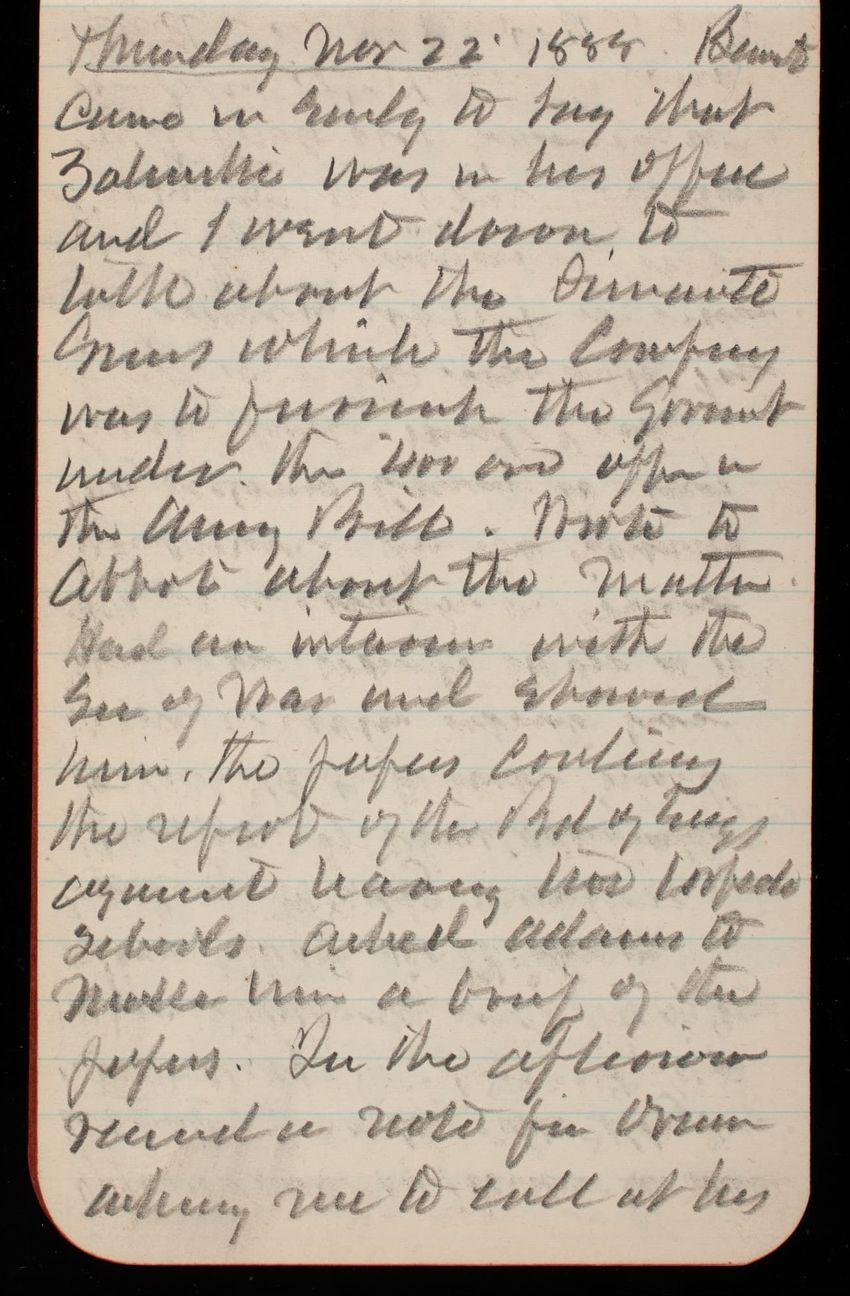 Thursday Nov 22 1888. Benet
came in early to say that
Zalinski was in his office
and I went down to
talk about the Dynamite
Guns which the Company
was to furnish the Govmt
under the 400 000 appn in
the Army Bill. Wrote to
Abbot about the matter.
Had an interview with the
Sec of War and showed
him the papers containing
the report of the Bd of Engs
against having two torpedo
schools. Asked Adams to
make him a brief of the
papers. In the afternoon
received a note fm
asking me to call at his